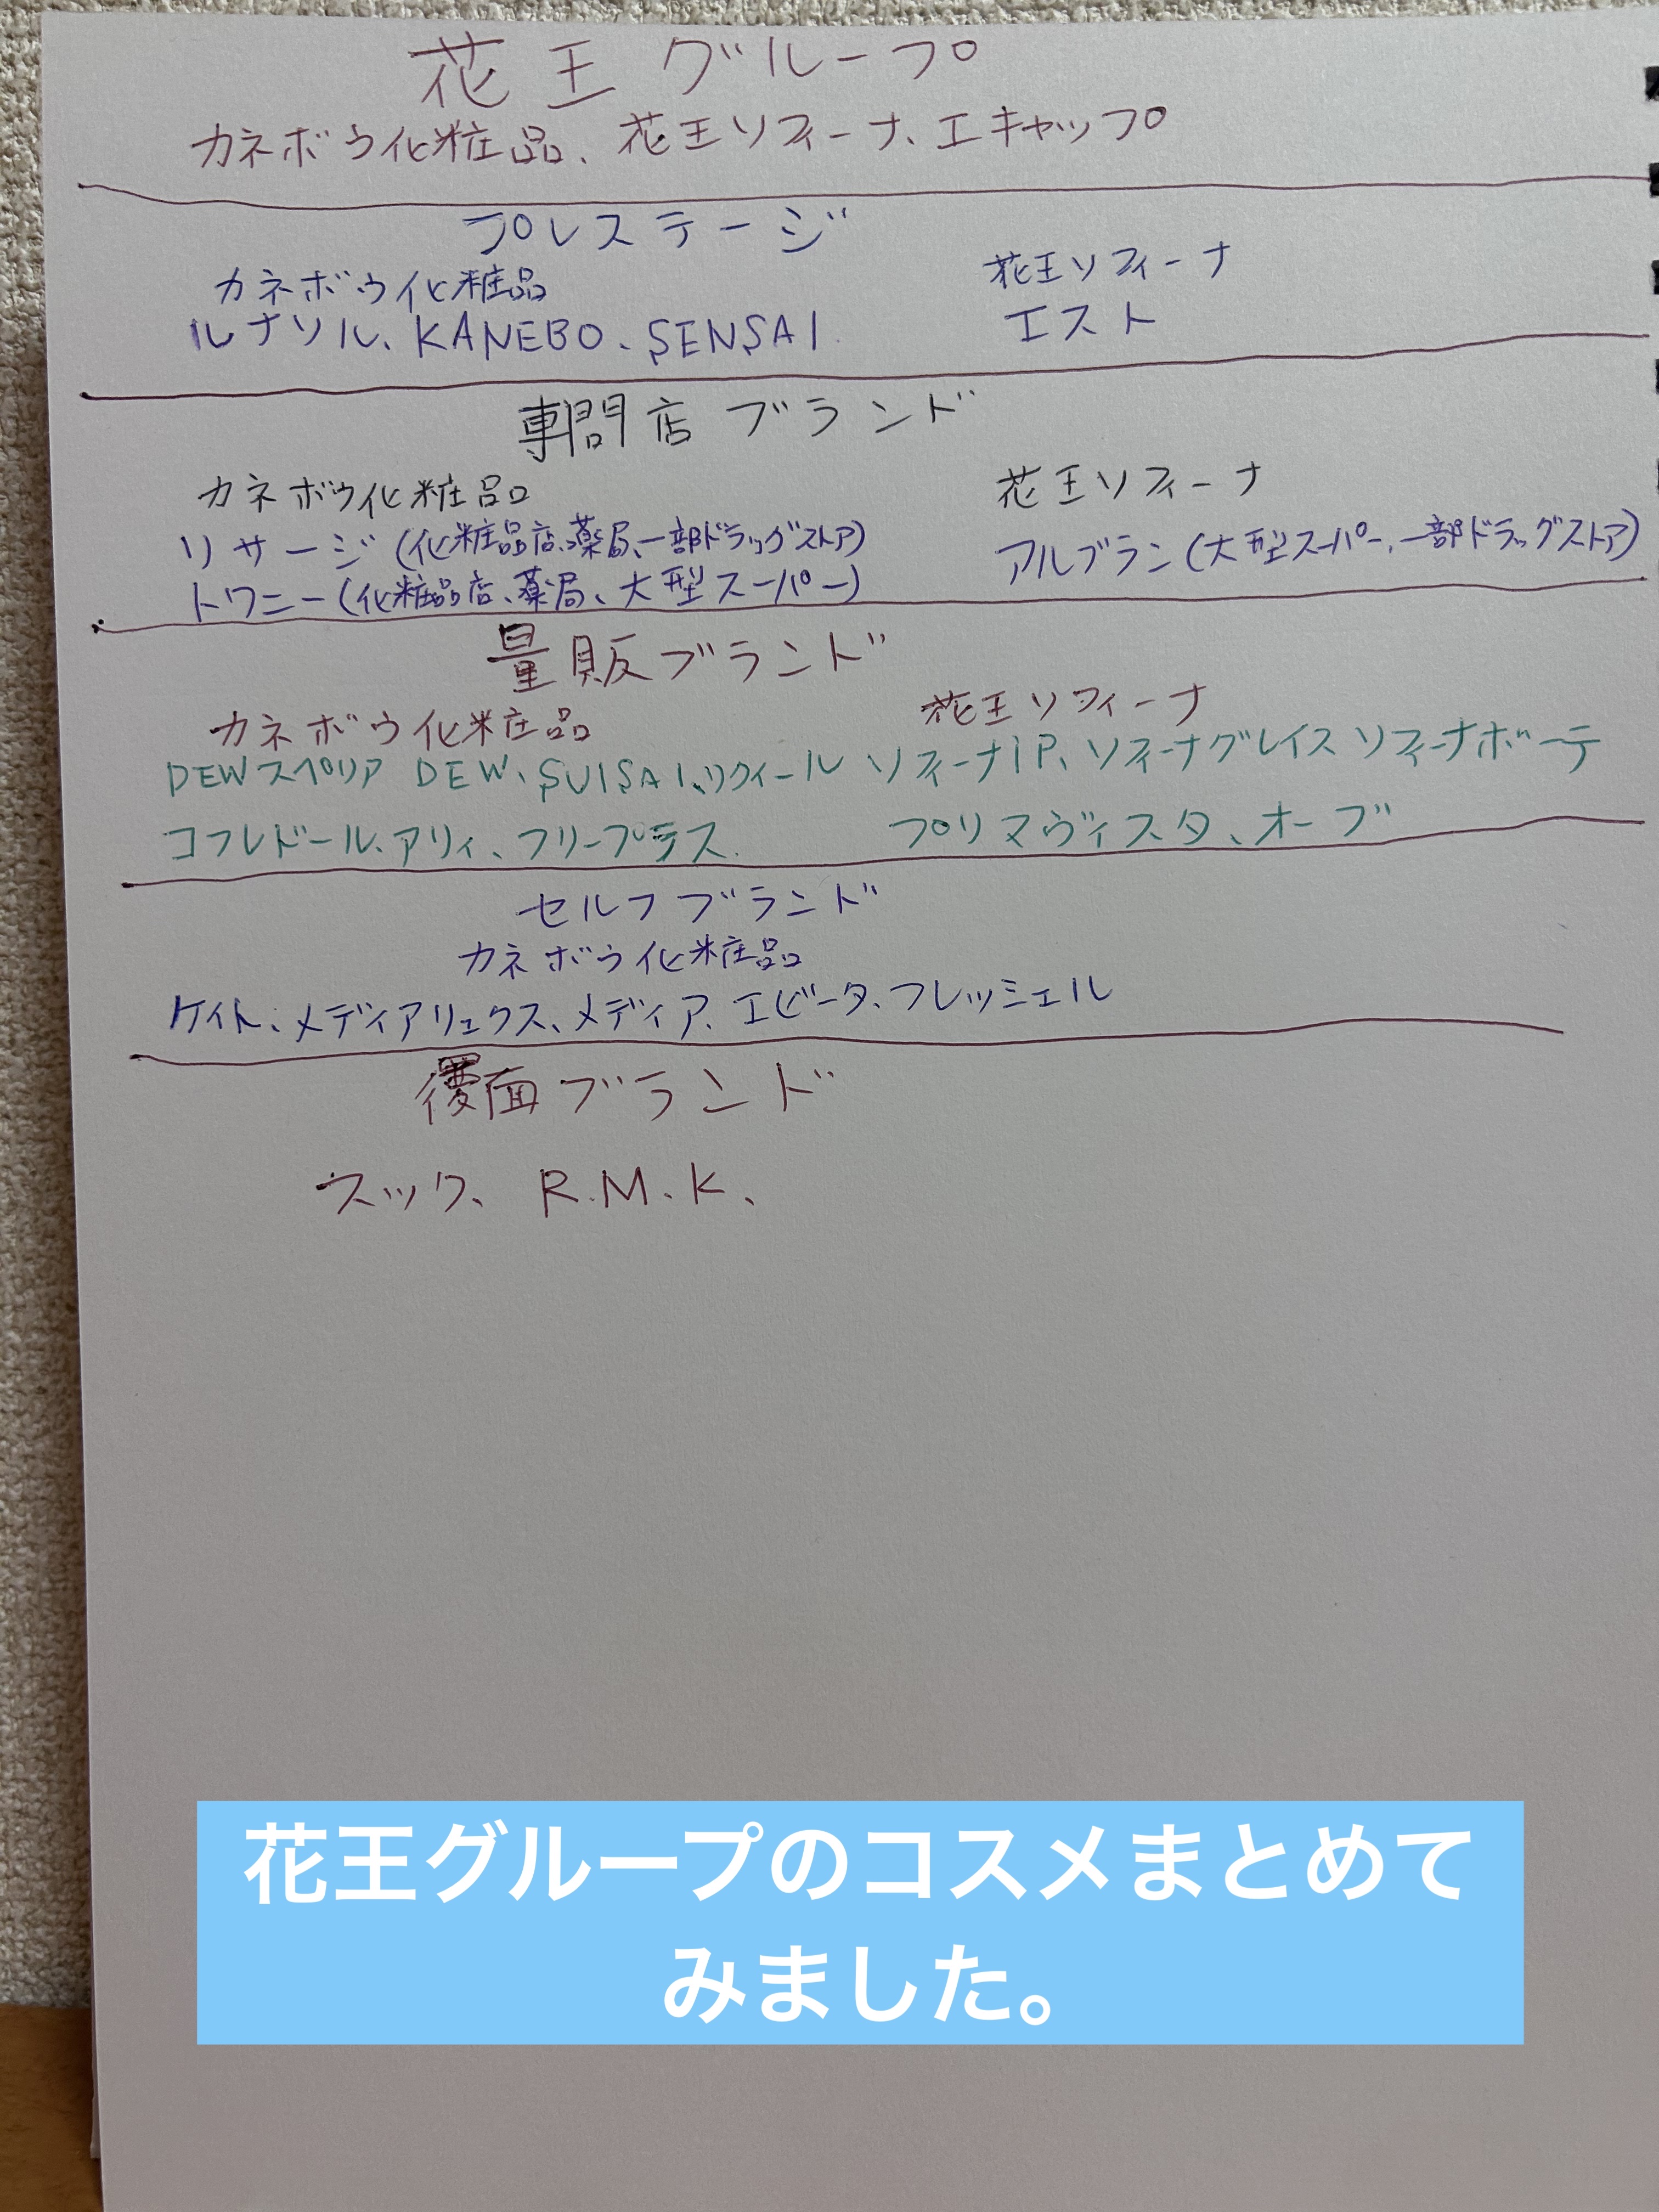 花王グループ
カネボウ化粧品、花王ソフィーナ、エキャップ
プレステージ
カネボウ化粧品
ルナソル、KANEBO、SENSAI
花王ソフィーナ
エスト
専門店ブランド
カネボウ化粧品
リサージ(化粧品店、薬局、一部ドラッグストア)
トワニー(化粧品店、薬局、大型スーパー)
花王ソフィーナ
アルブラン(大型スーパー、一部ドラッグストア)
量販ブランド
カネボウ化粧品
DEWスペリア DEW、SUISAI、リクイール
コフレドール、アリィ、フリープラス
花王ソフィーナ
ソフィーナIP、ソフィーナグレイス ソフィーナボーテ
プリマヴィスタ、オーブ
セルフブランド
カネボウ化粧品
ケイト、メディアリュクス、メディア、エビータ、フレッシェル
覆面ブランド
スック、R.M.K、
花王グループのコスメまとめて
みました。